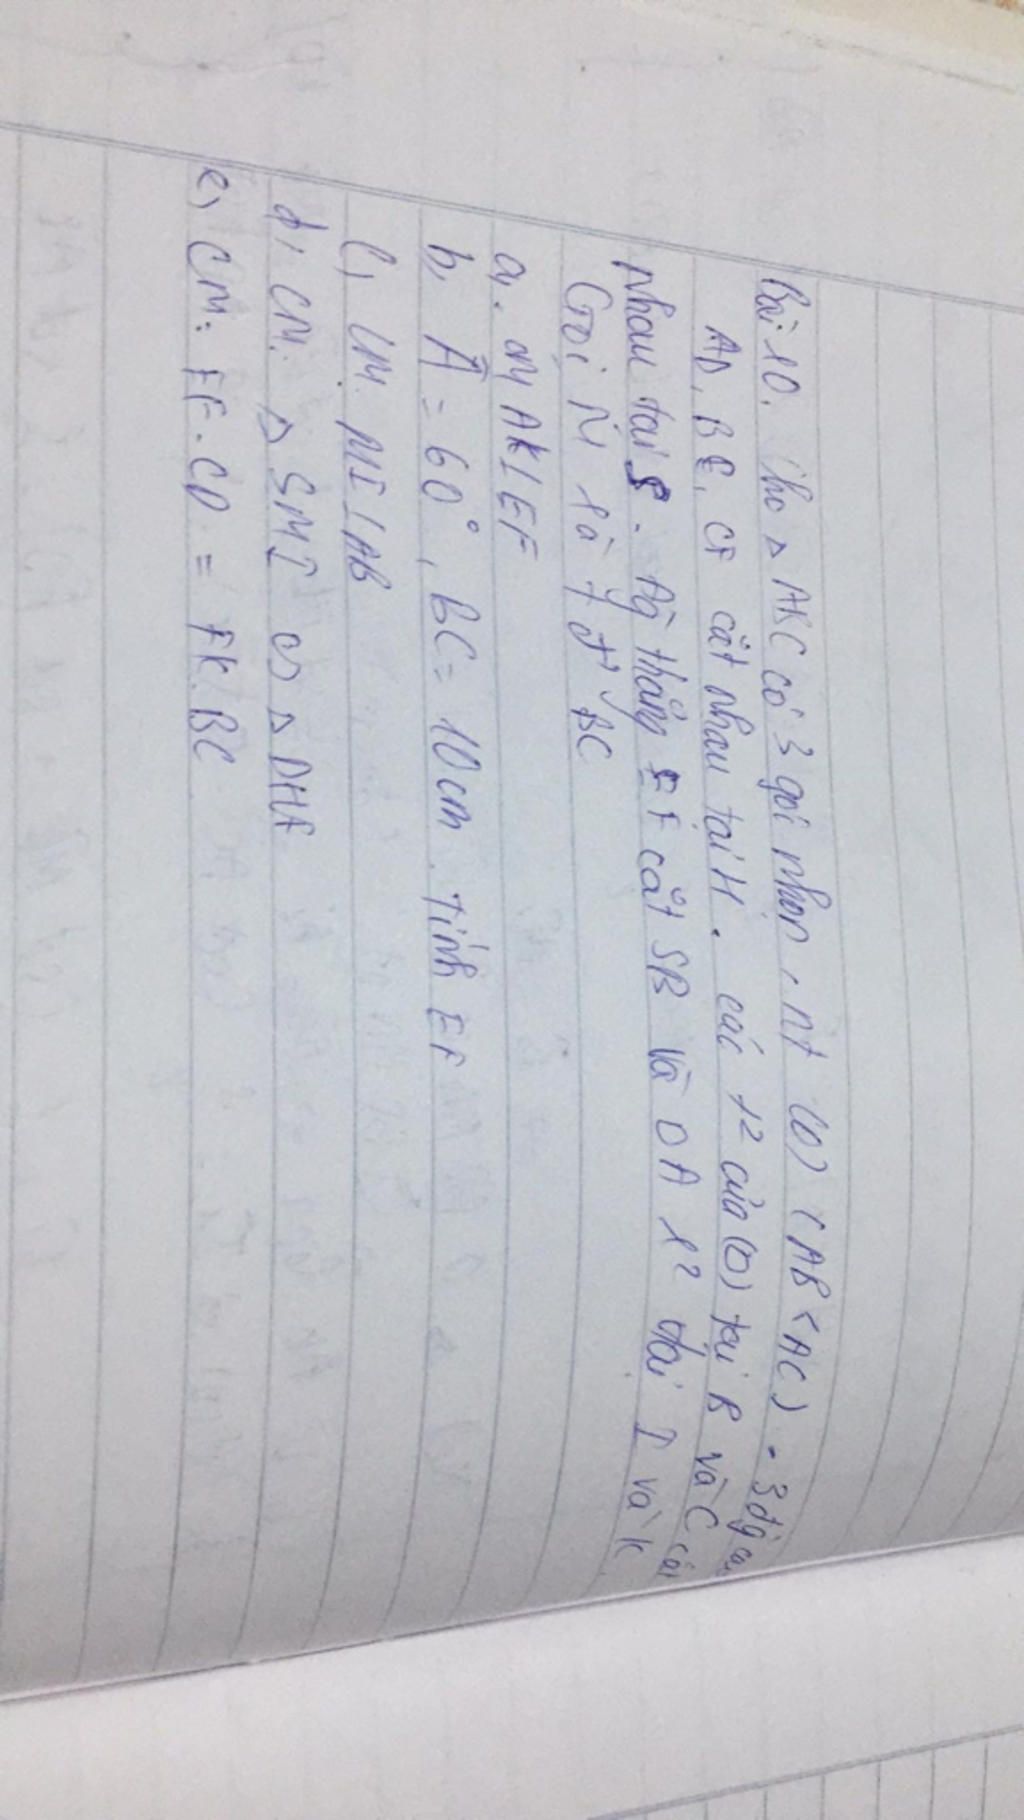 Bài 10. Cho △ ABC có 3 góc nhọn, nt (O) (AB < AC). 3 đg cao
AD, BE, CF cắt nhau tại H. các t² của (O) tại B và C cắt
nhau tại S. đg thẳng EF cắt SB và OA l² tại I và K
Gọi M là t đ' BC
a, cm AK ⊥ EF
b, Â = 60°, BC = 10cm. Tính EF
c, CM. MI ⊥ AB
d, CM. △ SMI ∽ △ DHF
e, CM: EF. CD = FK. BC